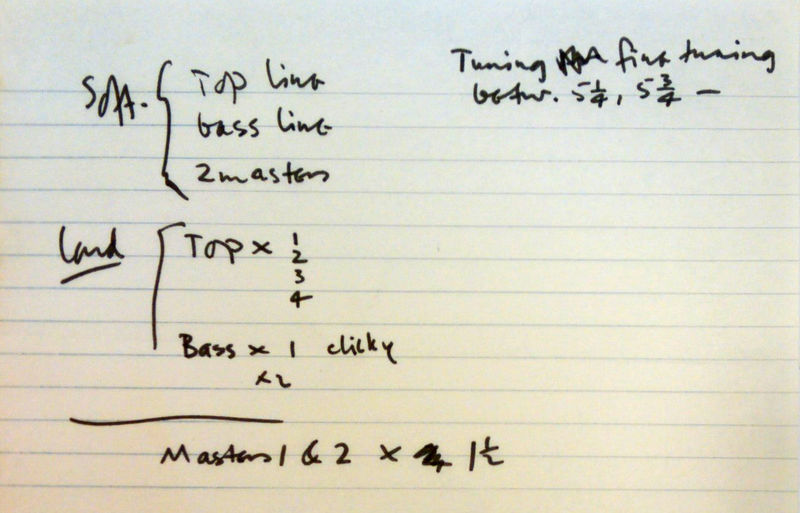 Soft. Top line
bass line
2 masters
Tuning fine tuning
betw. 5 1/4, 5 3/4 —
Loud Top x 1
2
3
4
Bass x 1 clicky
x2
Masters 1 & 2 x 1 1/2